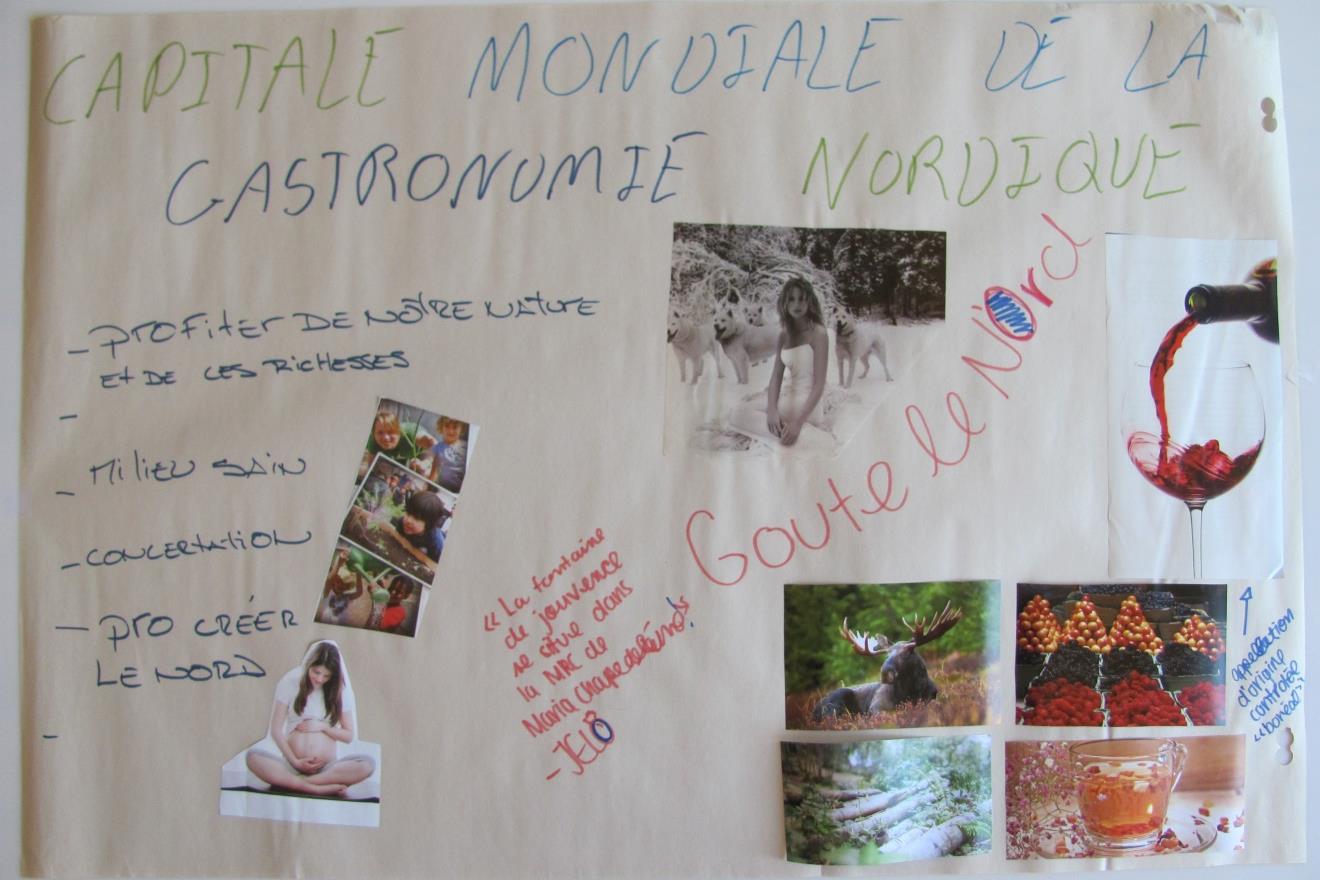 CAPITALE MONDIALE DE LA
GASTRONOMIE NORDIQUE
- PROFITER DE NÔTRE NATURE
ET DE CES RICHESSES
-
- MILIEU SAIN
- CONCERTATION
- PRO CRÉER
LE NORD
-
Goute le Nord
« La fontaine
de jouvence
se situe dans
la MRC de
Maria Chapdelaine!
- JELO
appellation
d'origine
contrôlée
« boréal »